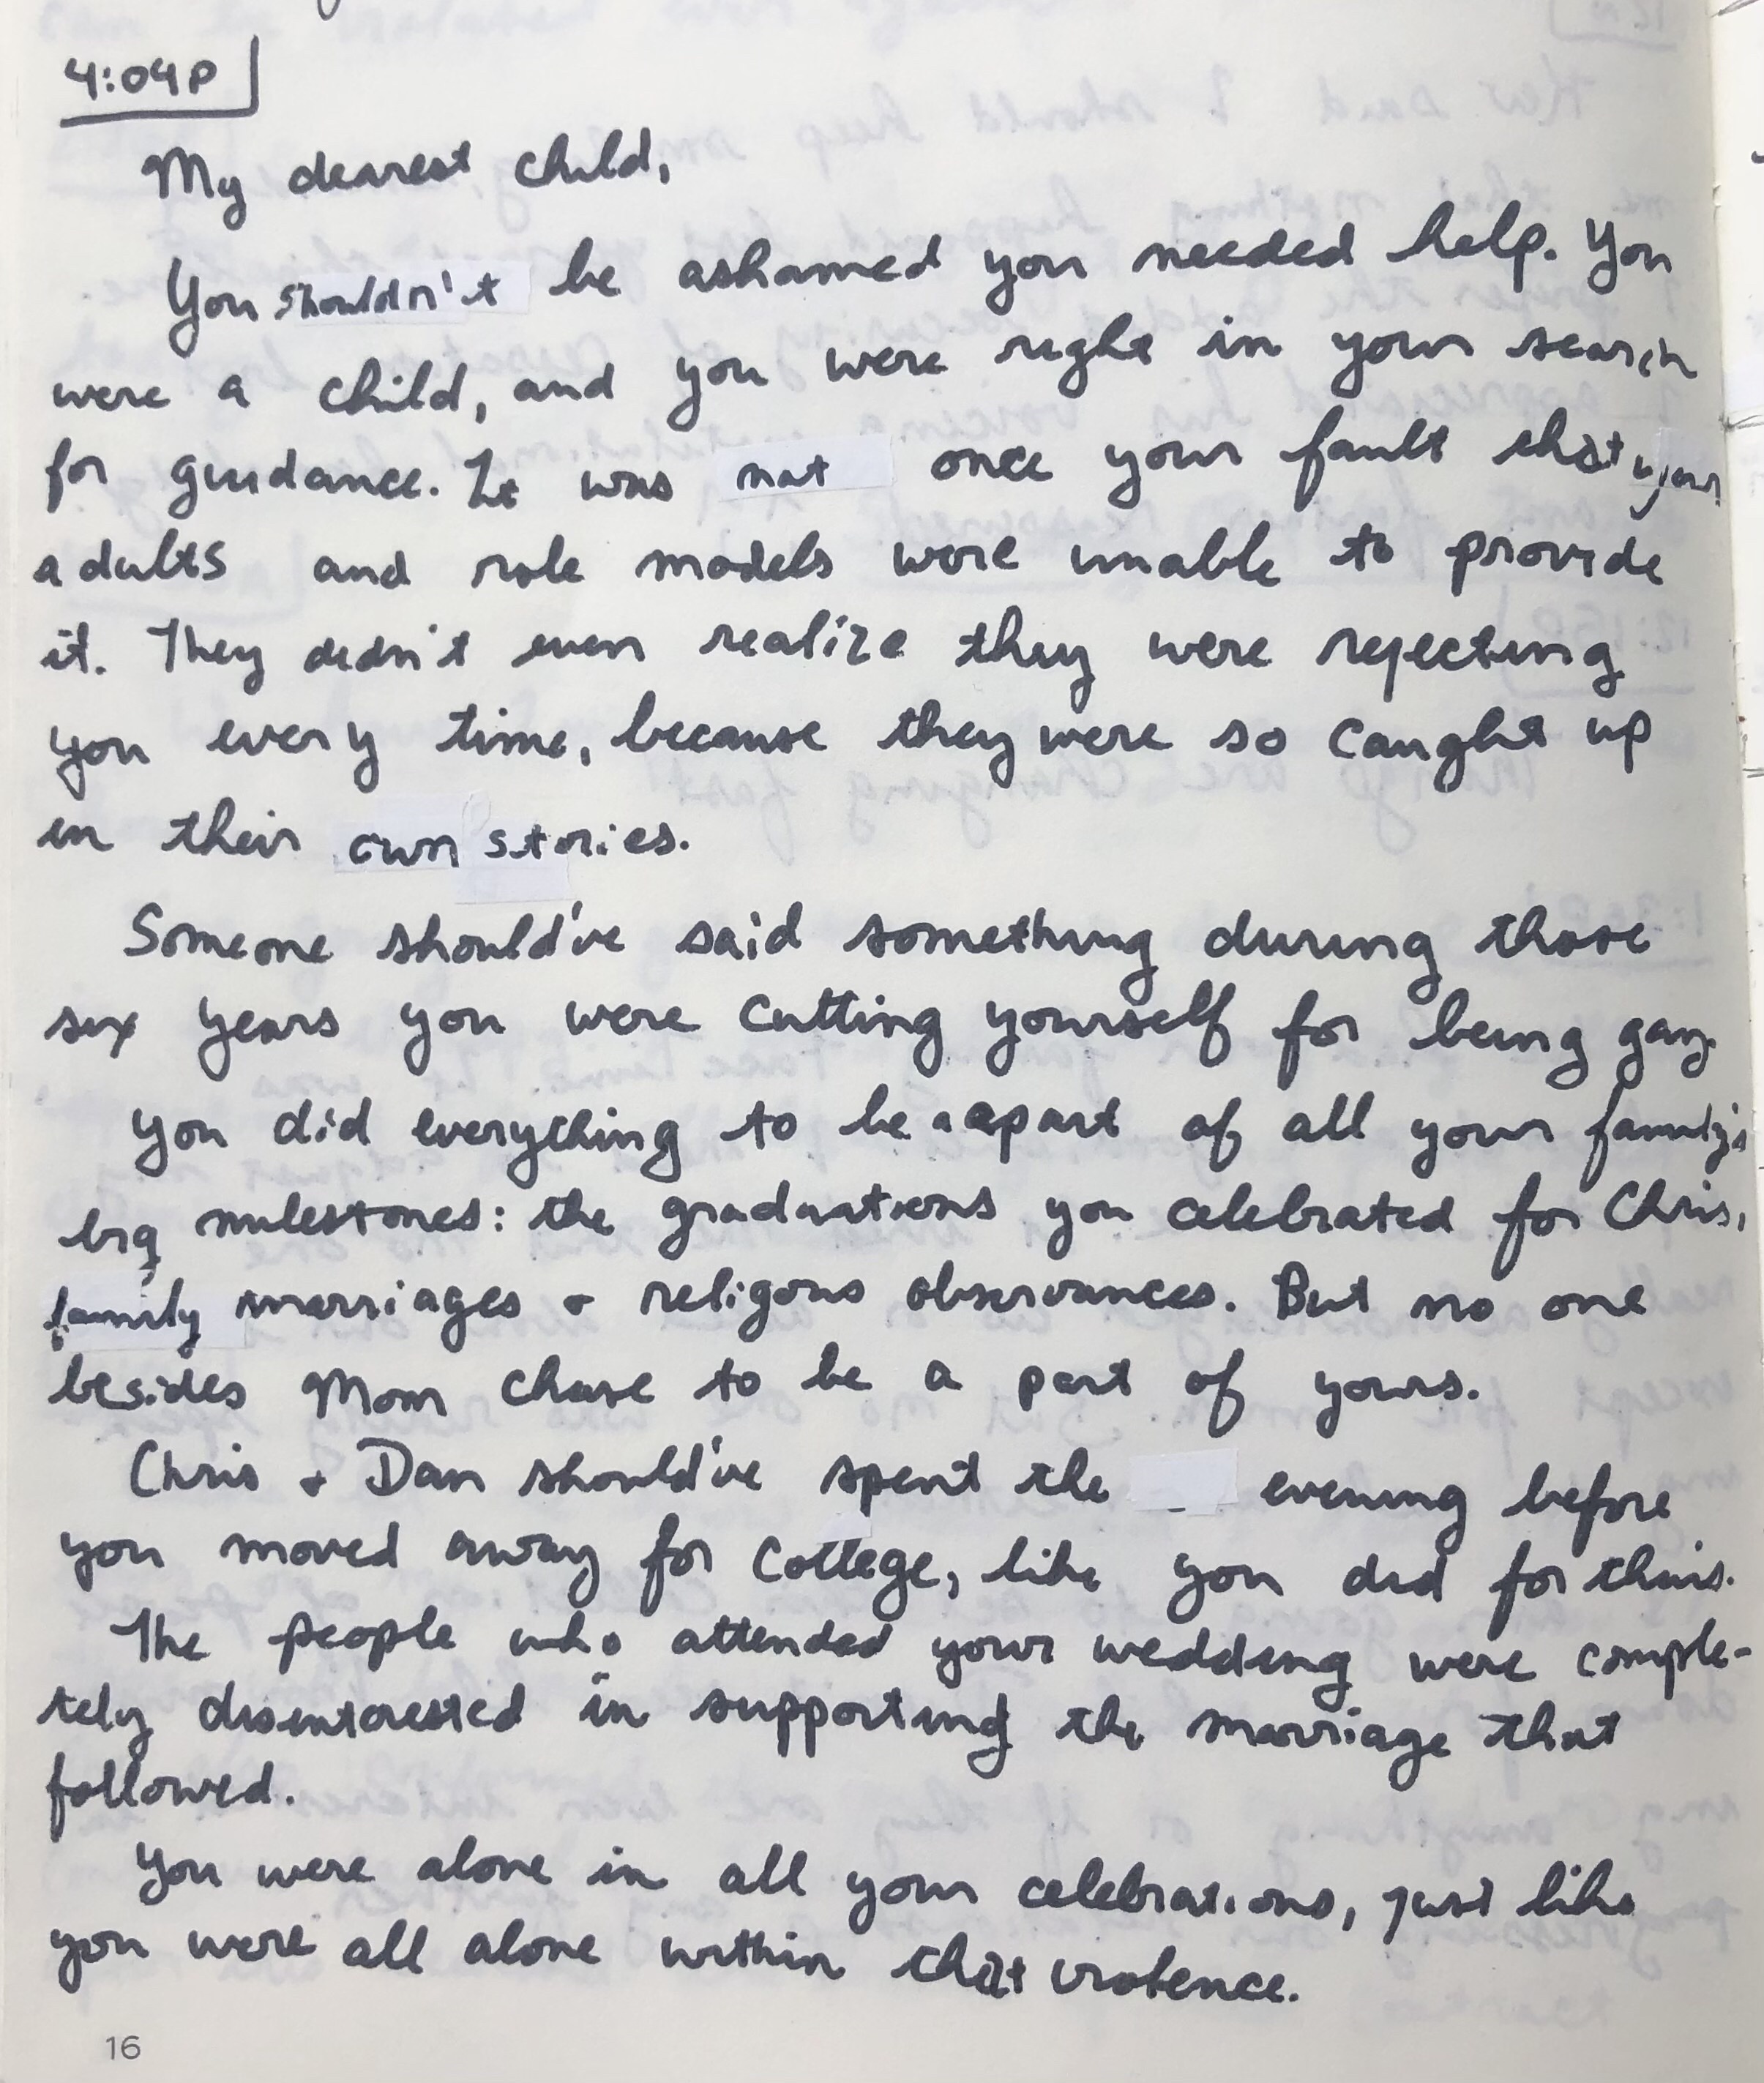 4:04P
My dearest child,
You shouldn't be ashamed you needed help. You
were a child, and you were right in your search
for guidance. It was not once your fault that your
adults and role models were unable to provide
it. They didn't even realize they were rejecting
you every time, because they were so caught up
in their own stories.
Someone should've said something during those
six years you were cutting yourself for being gay.
You did everything to be a apart of all your family's
big milestones: the graduations you celebrated for Chris,
family marriages + religous observances. But no one
besides Mom chose to be a part of yours.
Chris + Dan should've spent the evening before
you moved away for college, like you did for theirs.
The people who attended your wedding were comple-
tely disinterested in supporting the marriage that
followed.
You were alone in all your celebrations, just like
you were all alone within that violence.
16